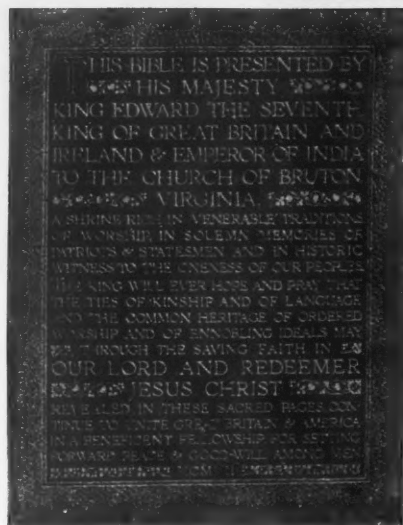 THIS BIBLE IS PRESENTED BY
HIS MAJESTY
KING EDWARD THE SEVENTH
KING OF GREAT BRITAIN AND
IRELAND & EMPEROR OF INDIA
TO THE CHURCH OF BRUTON
VIRGINIA
A SHRINE RICH IN VENERABLE TRADITIONS
OF WORSHIP, IN SOLEMN MEMORIES OF
PATRIOTS & STATESMEN AND IN HISTORIC
WITNESS TO THE ONENESS OF OUR PEOPLES
THE KING WILL EVER HOPE AND PRAY THAT
THE TIES OF KINSHIP AND OF LANGUAGE
AND THE COMMON HERITAGE OF ORDERED
WORSHIP AND OF ENNOBLING IDEALS MAY
THROUGH THE SAVING FAITH IN
OUR LORD AND REDEEMER
JESUS CHRIST
REVEALED IN THESE SACRED PAGES CON-
TINUE TO UNITE GREAT BRITAIN & AMERICA
IN A BENEFICENT FELLOWSHIP FOR SETTING
FORWARD PEACE & GOOD-WILL AMONG MEN